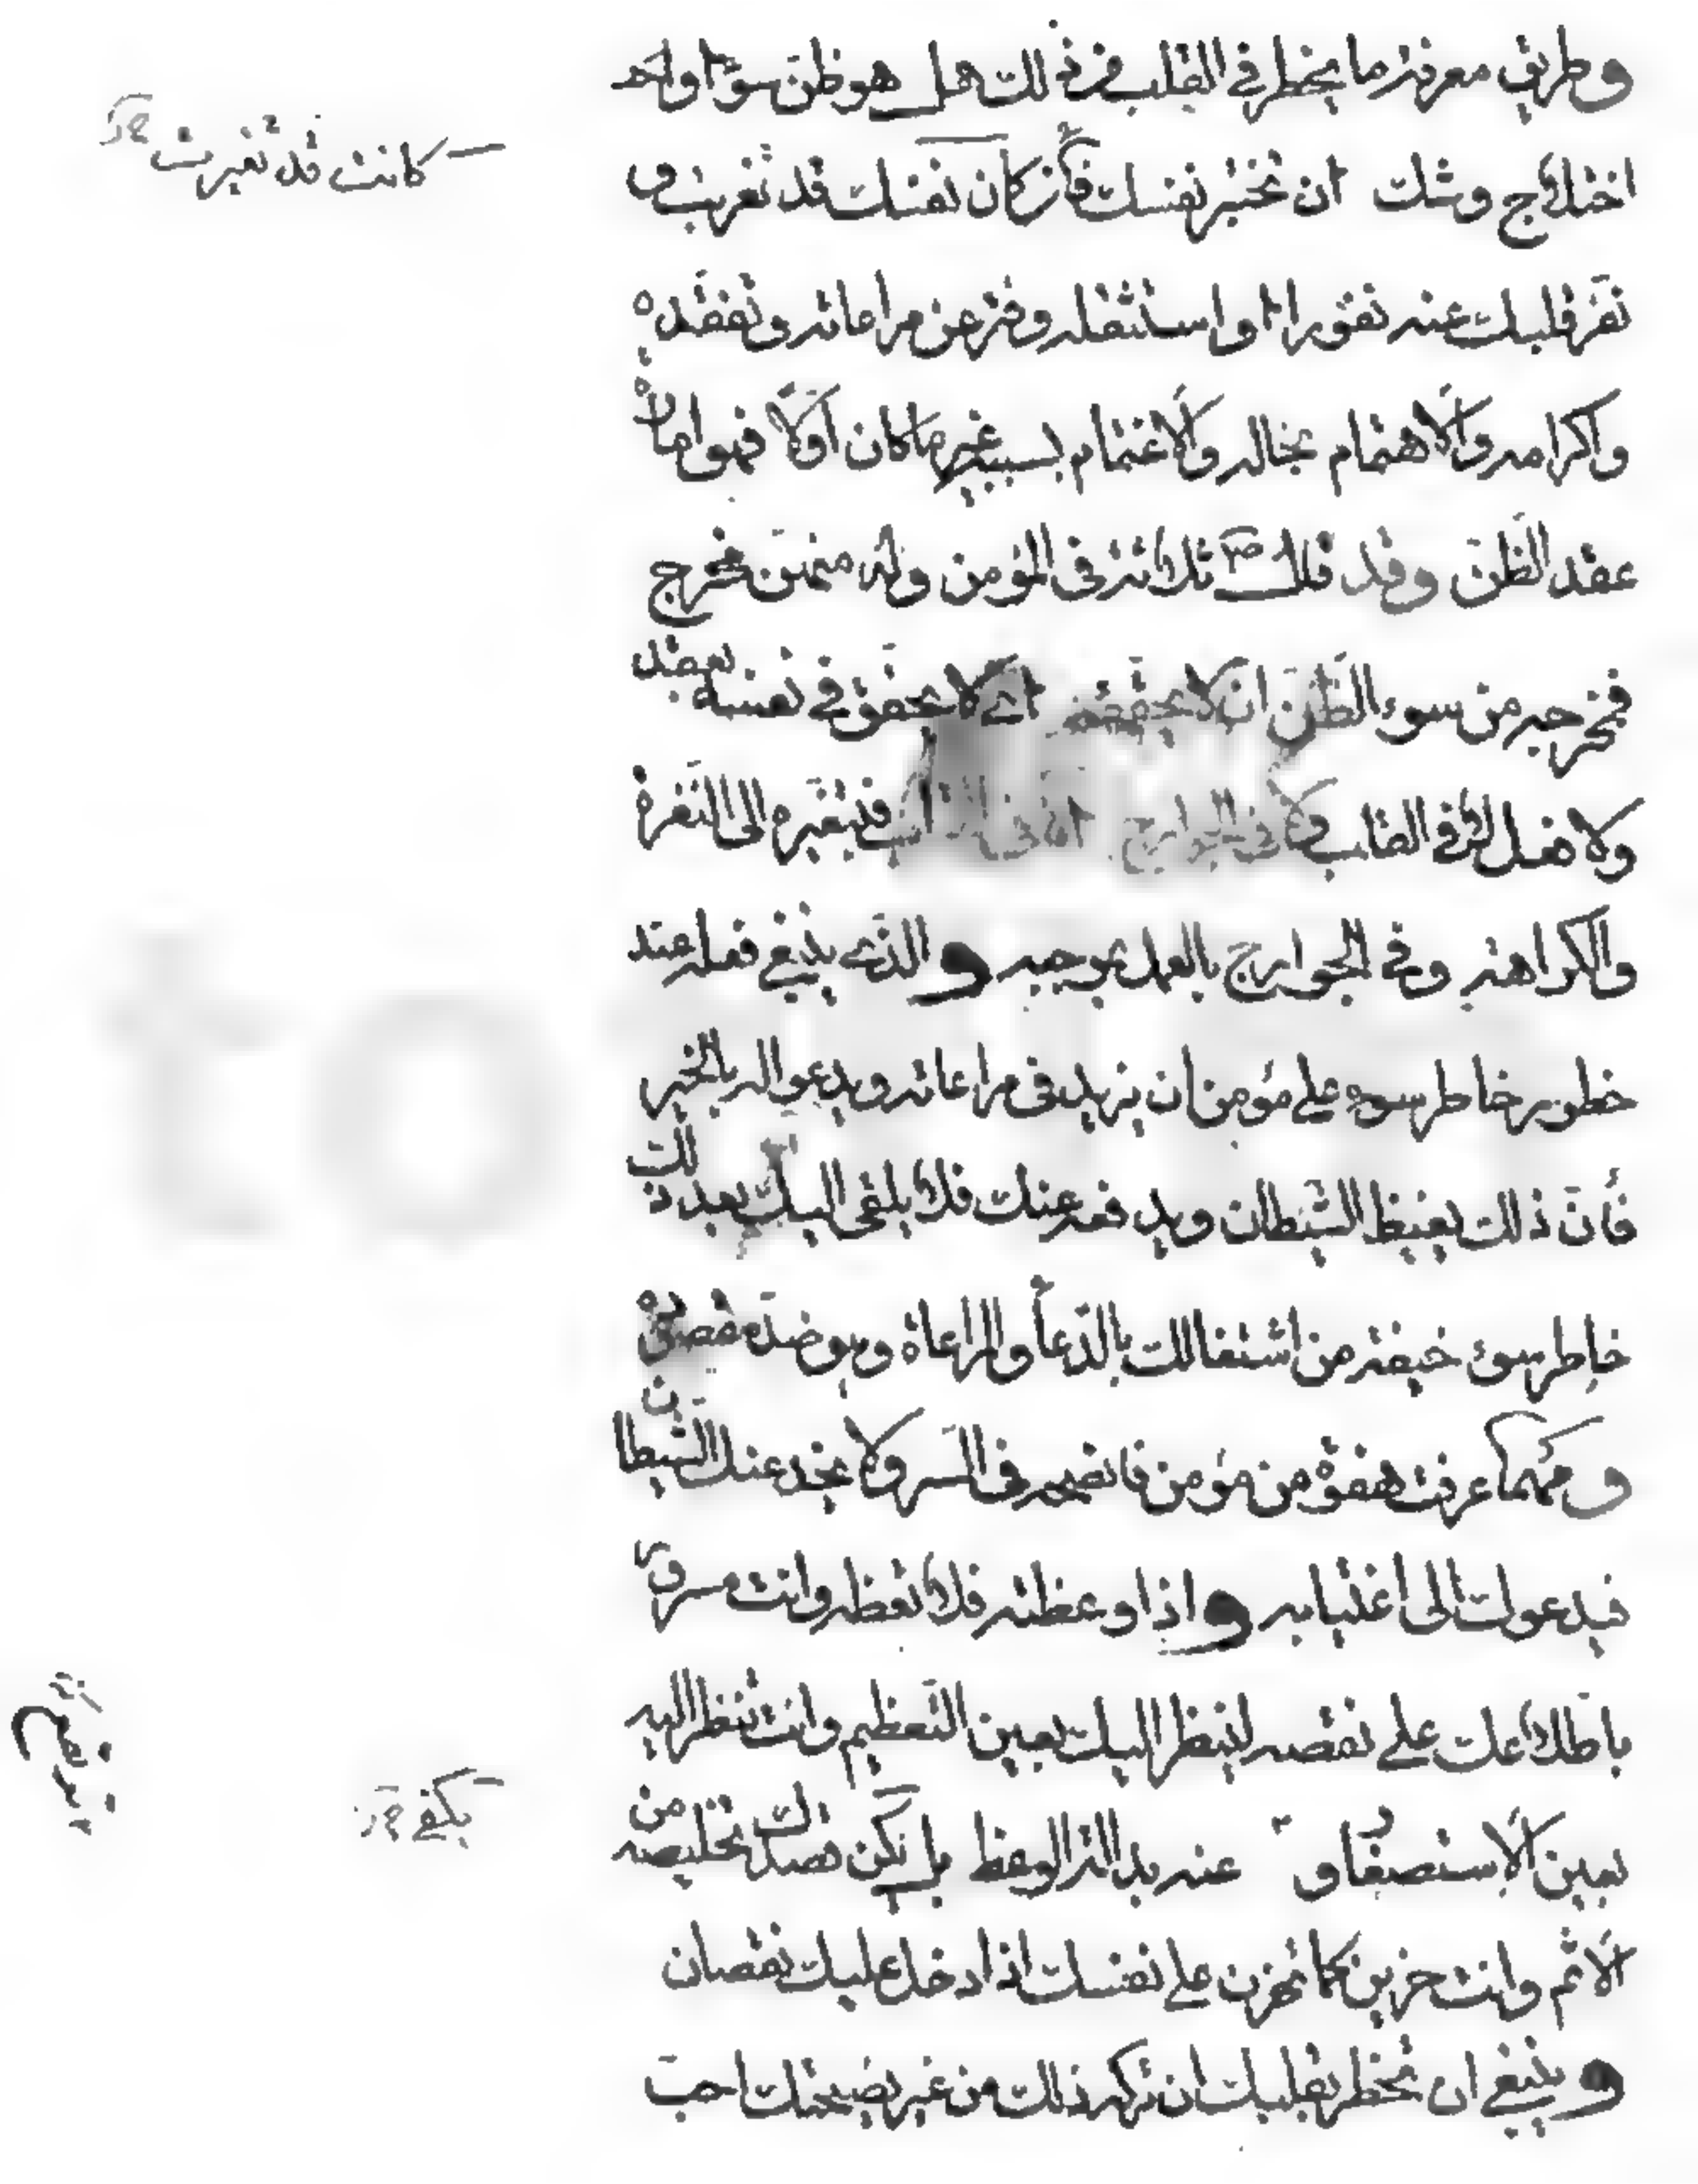 وطريق معرفة ما يخطر في القلب من ذلك هل هو ظن سوء او
اختلاج وشك ان تختبر نفسك فأن كان نفسك قد تغربت و
نفر قلبك عنه نفورا واستثقله وفتر عن مراعاته وتفقده
واكرامه والاهتمام بحاله والاغتمام بسببه غير ما كان اولا فهو امارة
عقد الظن وقد قال ص ثلاثة في المؤمن وله منهن مخرج
فمخرجه من سوء الظن ان لا يحققه اي لا يحقق في نفسه بعقد
ولا فعل لا في القلب ولا في الجوارح اما في القلب فبتغيره الى النفرة
والكراهة وفي الجوارح بالعمل بموجبه والذي ينبغي فعله عند
خطور خاطر سوء على مؤمن ان يزيد في مراعاته ويدعو اله بالخير
فأن ذلك يغيظ الشيطان ويدفعه عنك فلا يلقى اليك بعد ذلك
خاطر سوء خيفة من اشتغالك بالدعاء والمراعاة وهو ضد مقصوده
ومهما عرفت هفوة من مؤمن فانصحه في السر ولا يخدعنك الشيطان
فيدعوك الى اغتيابه واذا وعظته فلا تعظه وانت مسرور
باطلاعك على نقصه لينظر اليك بعين التعظيم وانت تنظر اليه
بعين الاستصغار و عنه بدالة الوعظ بل يكن قصدك تخليصه من
الاثم وانت حزين كما تحزن على نفسك اذا دخل عليك نقصان
وينبغي ان يخطر بقلبك ان تركه ذلك من غير نصيحتك احب
كانت قد تغيرت